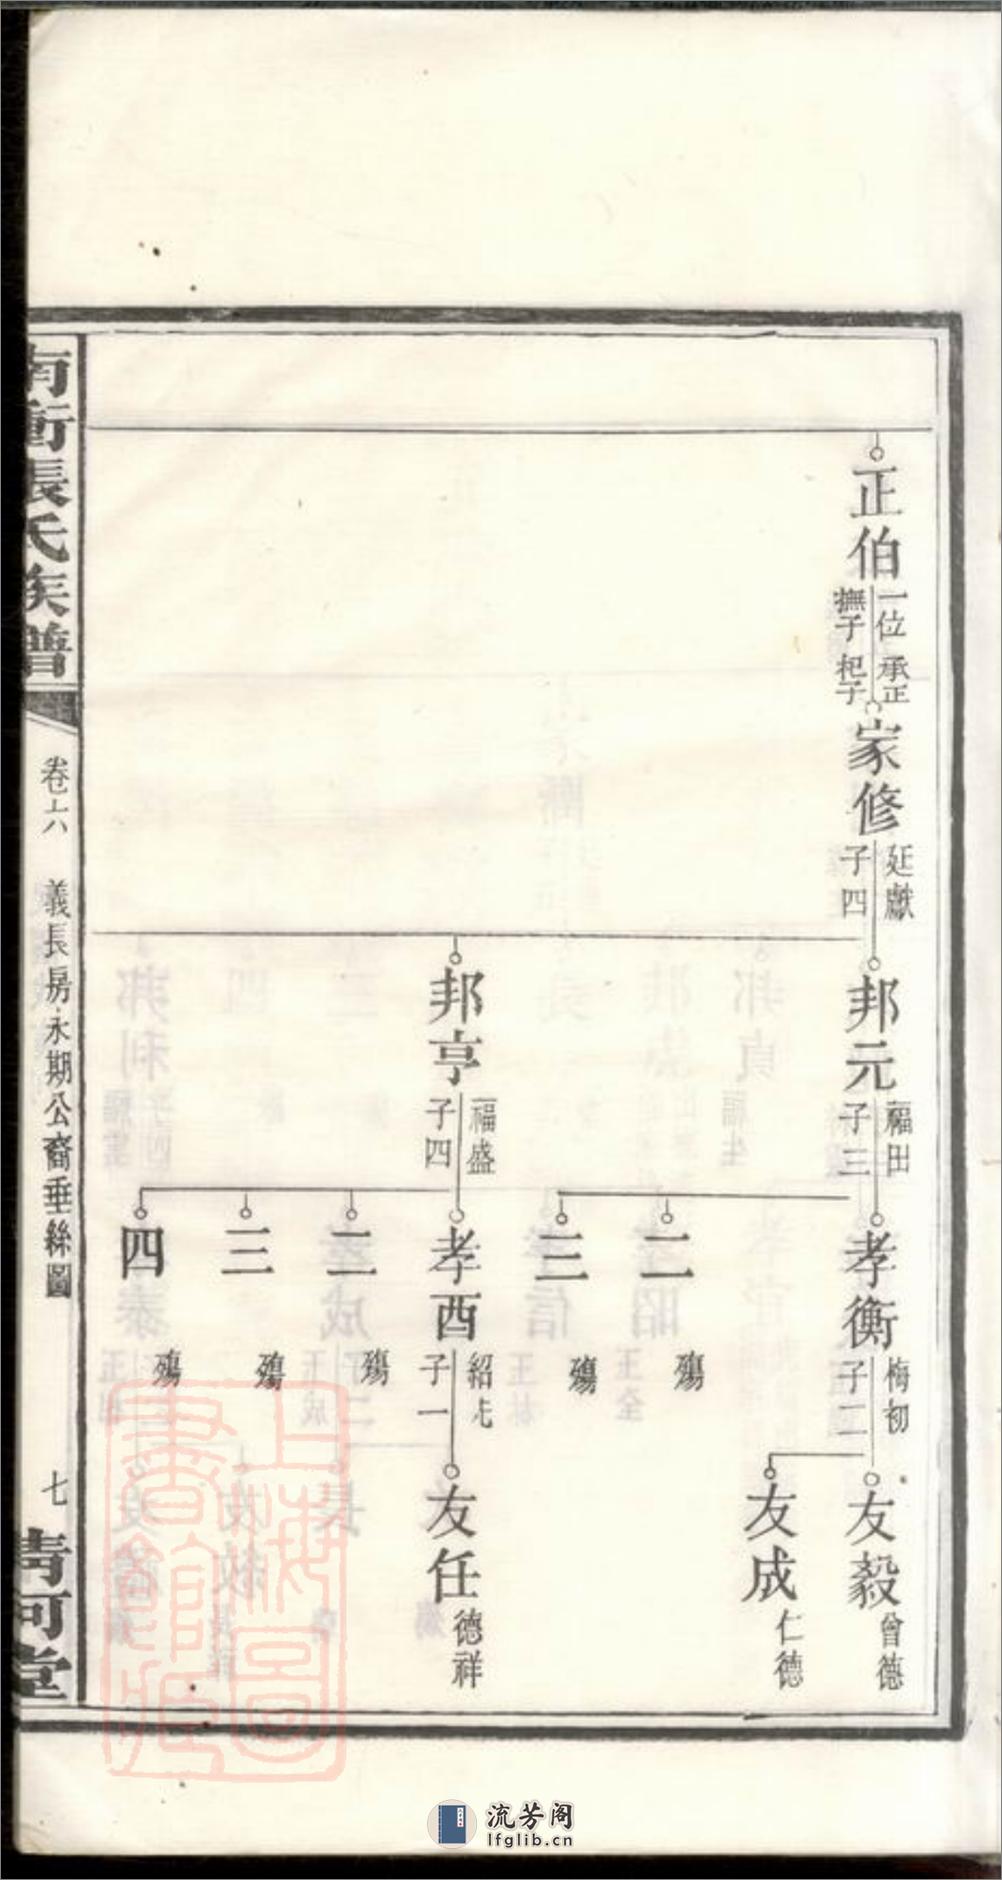 正伯
一位 承正
撫子 杞子
家修
延獻
子四
邦元
福田
子三
孝衡
梅初
子二
友毅
曾德
友成
仁德
二
殤
三
殤
邦亨
福盛
子四
孝酉
紹先
子一
友任
德祥
二
殤
三
殤
四
殤
南衝張氏族譜
卷六 義長房永期公裔垂絲圖
七
清河堂
上海圖書館藏
流芳阁
lfglib.cn